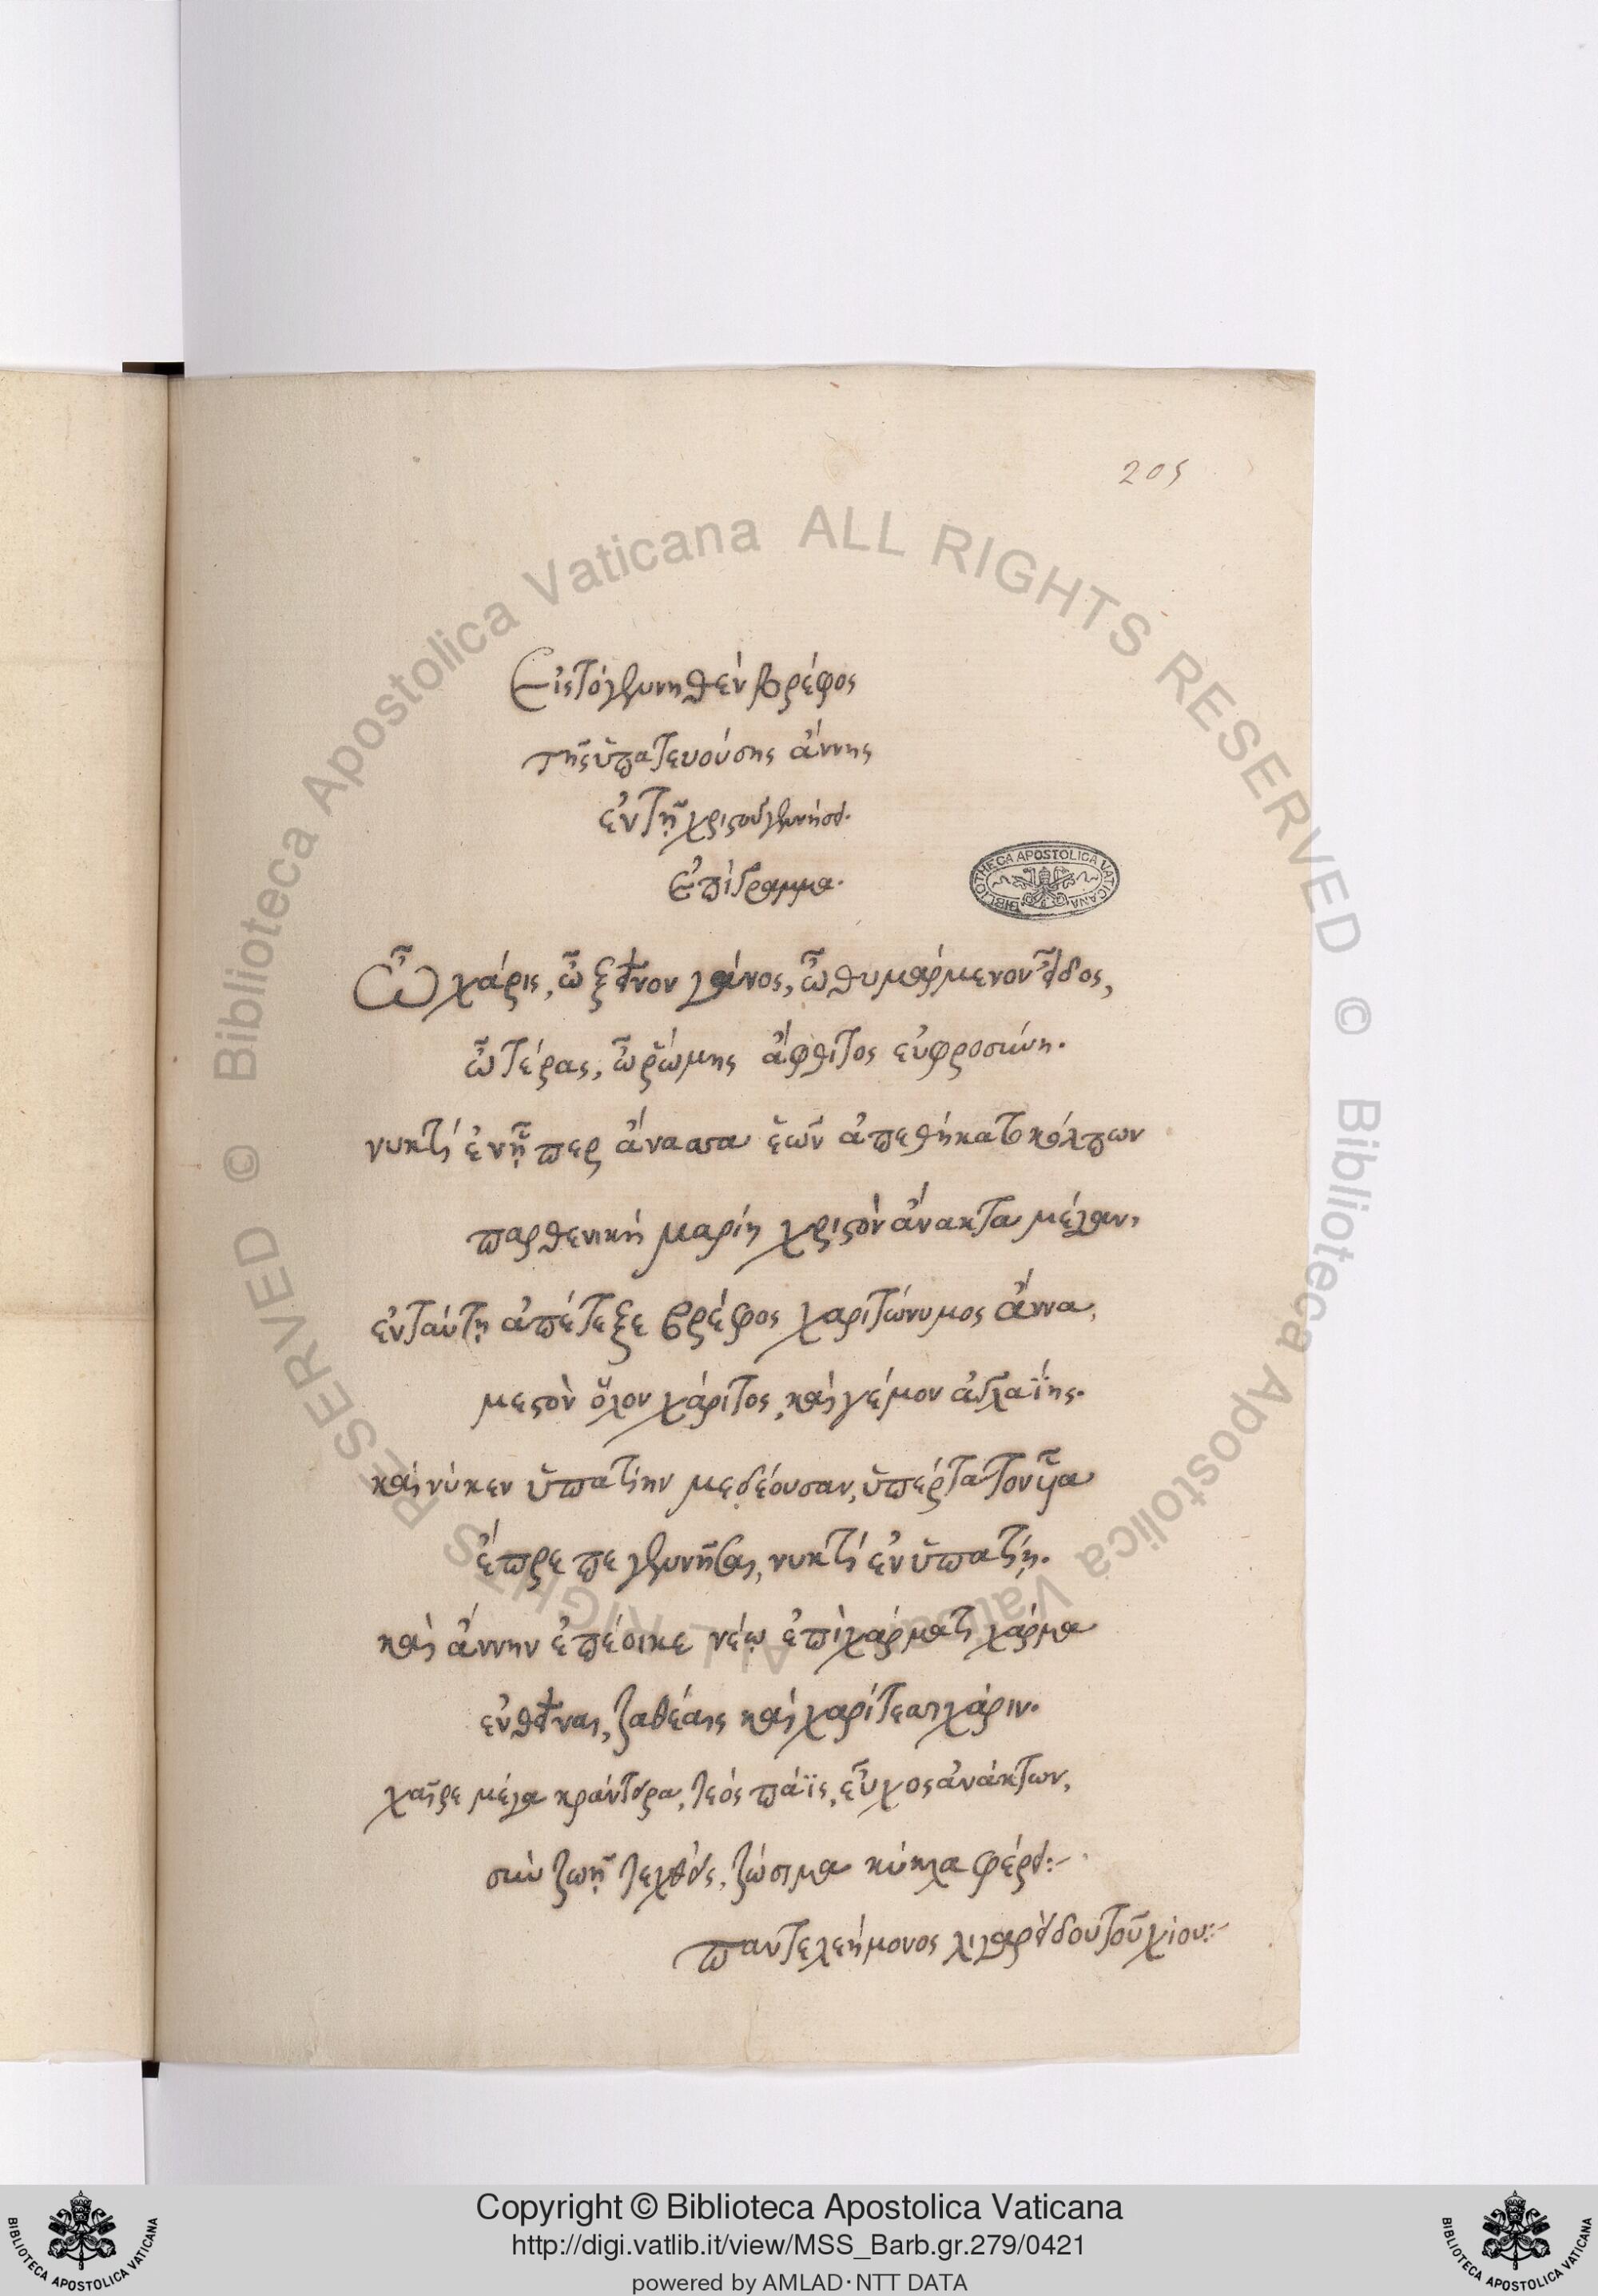 205
Εἰς τὸ γεννηθὲν βρέφος
τῆς ὑπατευούσης ἄννης
ἐν τῇ χριστοῦ γεννήσει.
Ἐπίγραμμα.
Ὦ χάρις, ὦ ξεῖνον γάνος, ὦ θυμάρμενον εἶδος,
ὦ τέρας, ὦ ῥώμης ἄφθιτος εὐφροσύνη.
νυκτὶ ἐν ᾗπερ ἄνασσα ἑῶν ἀπεθήκατο κόλπων
παρθενικὴ μαρίη χριστὸν ἄνακτα μέγαν,
ἐν ταύτῃ ἀπέτεξε βρέφος χαριτώνυμος ἄννα,
μεστὸν ὅλον χάριτος, καὶ γέμον ἀγλαΐης.
καὶ νύ κεν ὑπατίην μεδέουσαν, ὑπέρτατον υἷα
ἔπρεπε γεννῆσαι, νυκτὶ ἐν ὑπατίῃ.
καὶ ἄννην ἐπέοικε νέῳ ἐπὶ χάρματι χάρμα
ἐνθεῖναι, ζαθέαις καὶ χαρίτεσι χάριν.
χαῖρε μέγα κράντειρα, τεὸς πάϊς, εὖχος ἀνάκτων,
σὺν ζωῇ τεχθεὶς, ζώσιμα κύκλα φέρει:~
παντελεήμονος λιγαρείδου τοῦ χίου:~
BIBLIOTHECA APOSTOLICA VATICANA
© Biblioteca Apostolica Vaticana ALL RIGHTS RESERVED
© Biblioteca Apostolica Vaticana ALL RIGHTS RESERVED
Copyright © Biblioteca Apostolica Vaticana
http://digi.vatlib.it/view/MSS_Barb.gr.279/0421
powered by AMLAD·NTT DATA
BIBLIOTECA APOSTOLICA VATICANA
BIBLIOTECA APOSTOLICA VATICANA